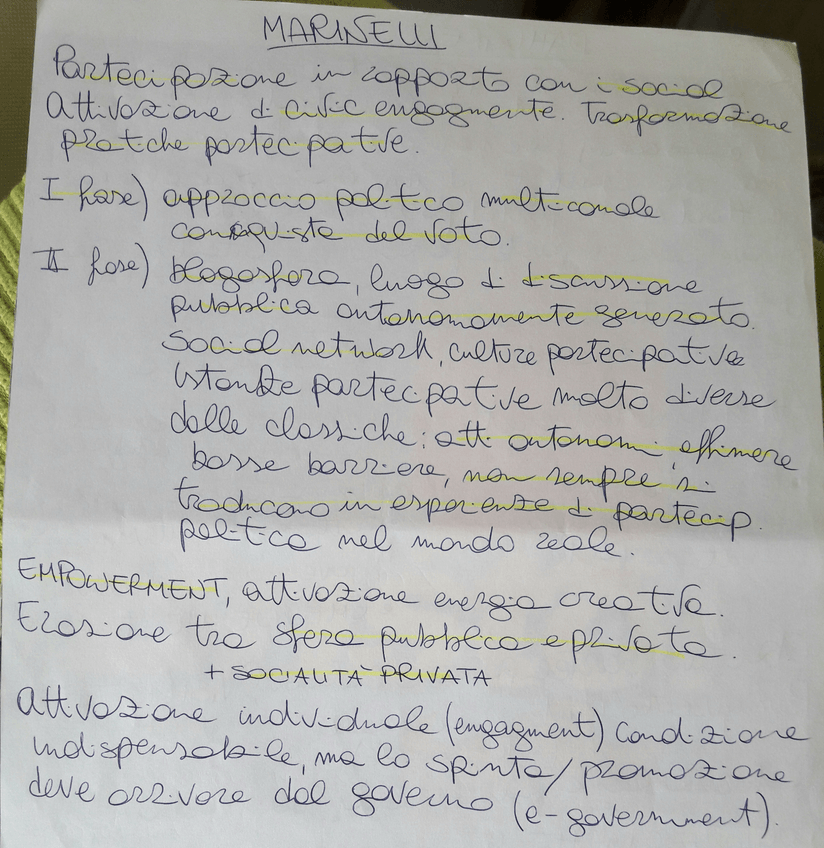 MARINELLI
Partecipazione in rapporto con i social
attivazione di civic engagmente. Trasformazione
pratiche partecipative.
I fase) approccio politico multicanale
conquista del voto.
II fase) blogosfera, luogo di discussione
pubblica autonomamente generato.
Social network, culture partecipative
Istanze partecipative molto diverse
dalle classiche: atti autonomi, effimere
basse barriere, non sempre si
traducono in esperienze di partecip.
politica nel mondo reale.
EMPOWERMENT, attivazione energia creativa.
Erosione tra sfera pubblica e privata.
+ SOCIALITÀ PRIVATA
Attivazione individuale (engagment) condizione
indispensabile, ma la spinta/promozione
deve arrivare dal governo (e-government).